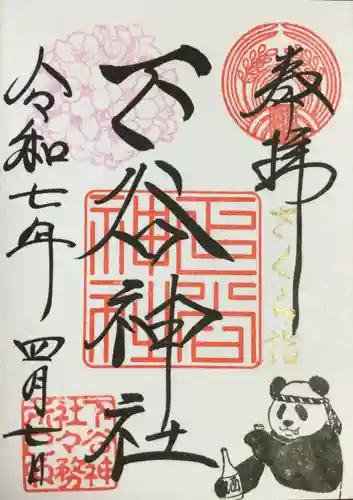 奉拝
さくら詣
下谷神社
令和七年
四月七日
下谷神社
下谷神
社々務
酒